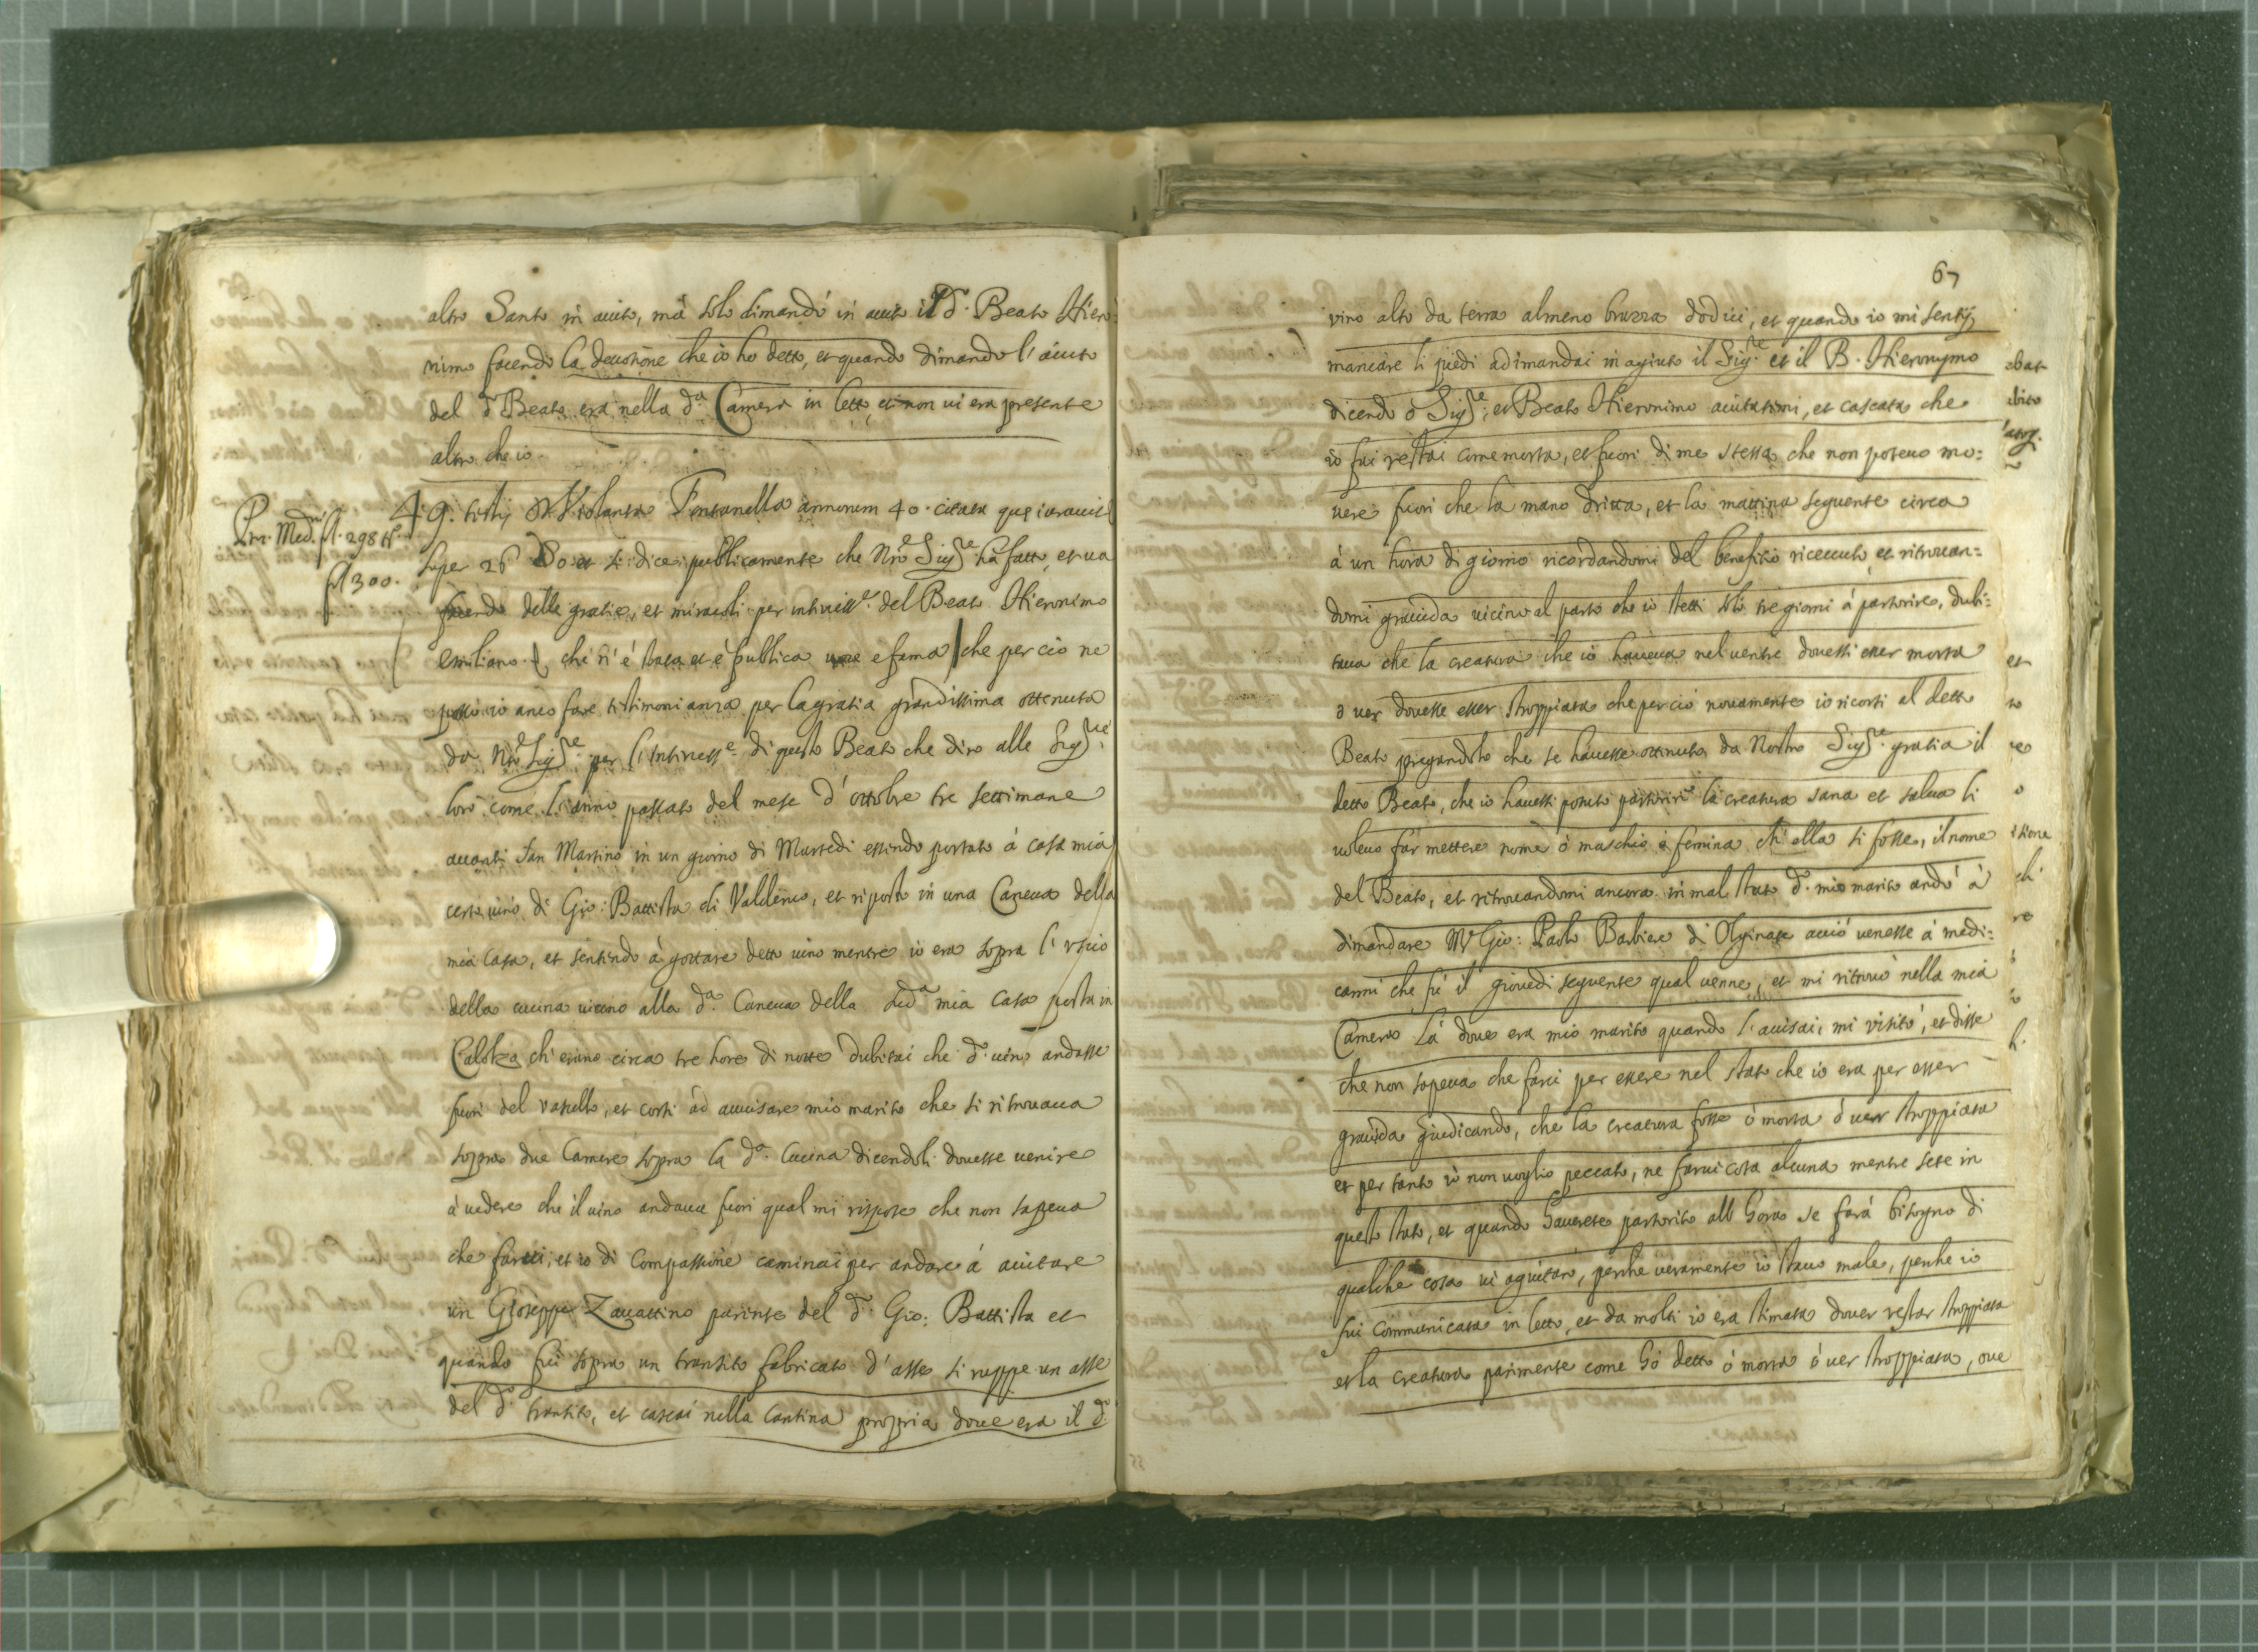 altro Santo in aiuto, mà solo dimandò in aiuto il d.º Beato Hiero:
nimo facendo la deuotione che io ho detto, et quando dimandò l'aiuto
del d.º Beato era nella d.ª Camera in letto, et non ui era presente
altro che io.
Pro. Med. fl. 298 tº.
fl 300.
4 9. testis D. Violanta Fontanella annorum 40. citata que iurauit
super 26 Dº et si dice publicamente che Nrō Sig.re ha fatto, et ua
facendo delle gratie, et miracoli per intercess.e del Beato Hieronimo
Emiliano. che n'è stata et è publica uoce e fama che per ciò ne
posso io anco fare testimonianza per la gratia grandissima ottenuta
da Nrō Sig.re per l'intercess.e di questo Beato che dirò alle Sig.rie
loro come l'anno passato del mese d'ottobre tre settimane
auanti San Martino in un giorno di Martedi essendo portato à casa mia
certo uino di Gio: Battista di Valderue, et riposto in una Caneua della
mia casa, et sentendo à gottare detto uino mentre io era sopra l'uscio
della cucina uicino alla d.ª Caneua della sud.ª mia casa posta in
Calolza ch'erano circa tre hore di notte dubitai che d.º uino andasse
fuori del vasello, et corsi ad auuisare mio marito che si ritrouaua
sopra due Camere sopra la d.ª Cucina dicendoli douesse uenire
à uedere che il uino andaua fuori qual mi rispose che non sapeua
che farui, et io di Compassione caminai per andare à aiutare
un Gioseppe Zauattino parente del d.º Gio: Battista et
quando fui sopra un transito fabricato d'asse si roppe un asse
del d.º transito, et cascai nella Cantina propria doue era il d.º
67
vino alto da terra almeno brazza dodici, et quando io mi sentij
mancare li piedi adimandai in agiuto il Sig.re et il B. Hieronymo
dicendo ò Sig.re, et Beato Hieronimo aiutatemi, et cascata che
io fui restai come morta, et fuori di me stessa che non poteuo mo:
uere fuori che la mano dritta, et la mattina seguente circa
à un hora di giorno ricordandomi del benefitio riceuuto, et ritrouan:
domi grauida uicino al parto che io stetti solo tre giorni à partorire, dubi:
taua che la creatura che io haueua nel uentre douessi esser morta
ò uer douesse esser stroppiata che perciò nouamente io ricorsi al detto
Beato pregandolo che se hauesse ottenuta da Nostro Sig.re gratia il
detto Beato, che io hauessi potuto partorire la creatura sana et salua li
uoleuo far mettere nome ò maschio ò femina ch'ella si fosse, il nome
del Beato, et ritrouandomi ancora in mal stato d.º mio marito andò à
dimandare Mr Gio: Paolo Barbiere di Olginate acciò uenesse à medi:
carmi che fù il giouedì seguente qual uenne, et mi ritrouò nella mia
Camera là doue era mio marito quando l'auisai, mi visitò, et disse
che non sapeua che farci per essere nel stato che io era per esser
grauida giudicando, che la creatura fosse ò morta ò uer stroppiata
et per tanto io non uoglio peccato, ne farui cosa alcuna mentre sete in
questo stato, et quando hauerete partorito all hora se farà bisogno di
qualche cosa ui agiutarò, perche ueramente io stauo male, perche io
fui communicata in letto, et da molti io era stimata douer restar stroppiata
et la creatura parimente come hò detto ò morta ò uer stroppiata, oue